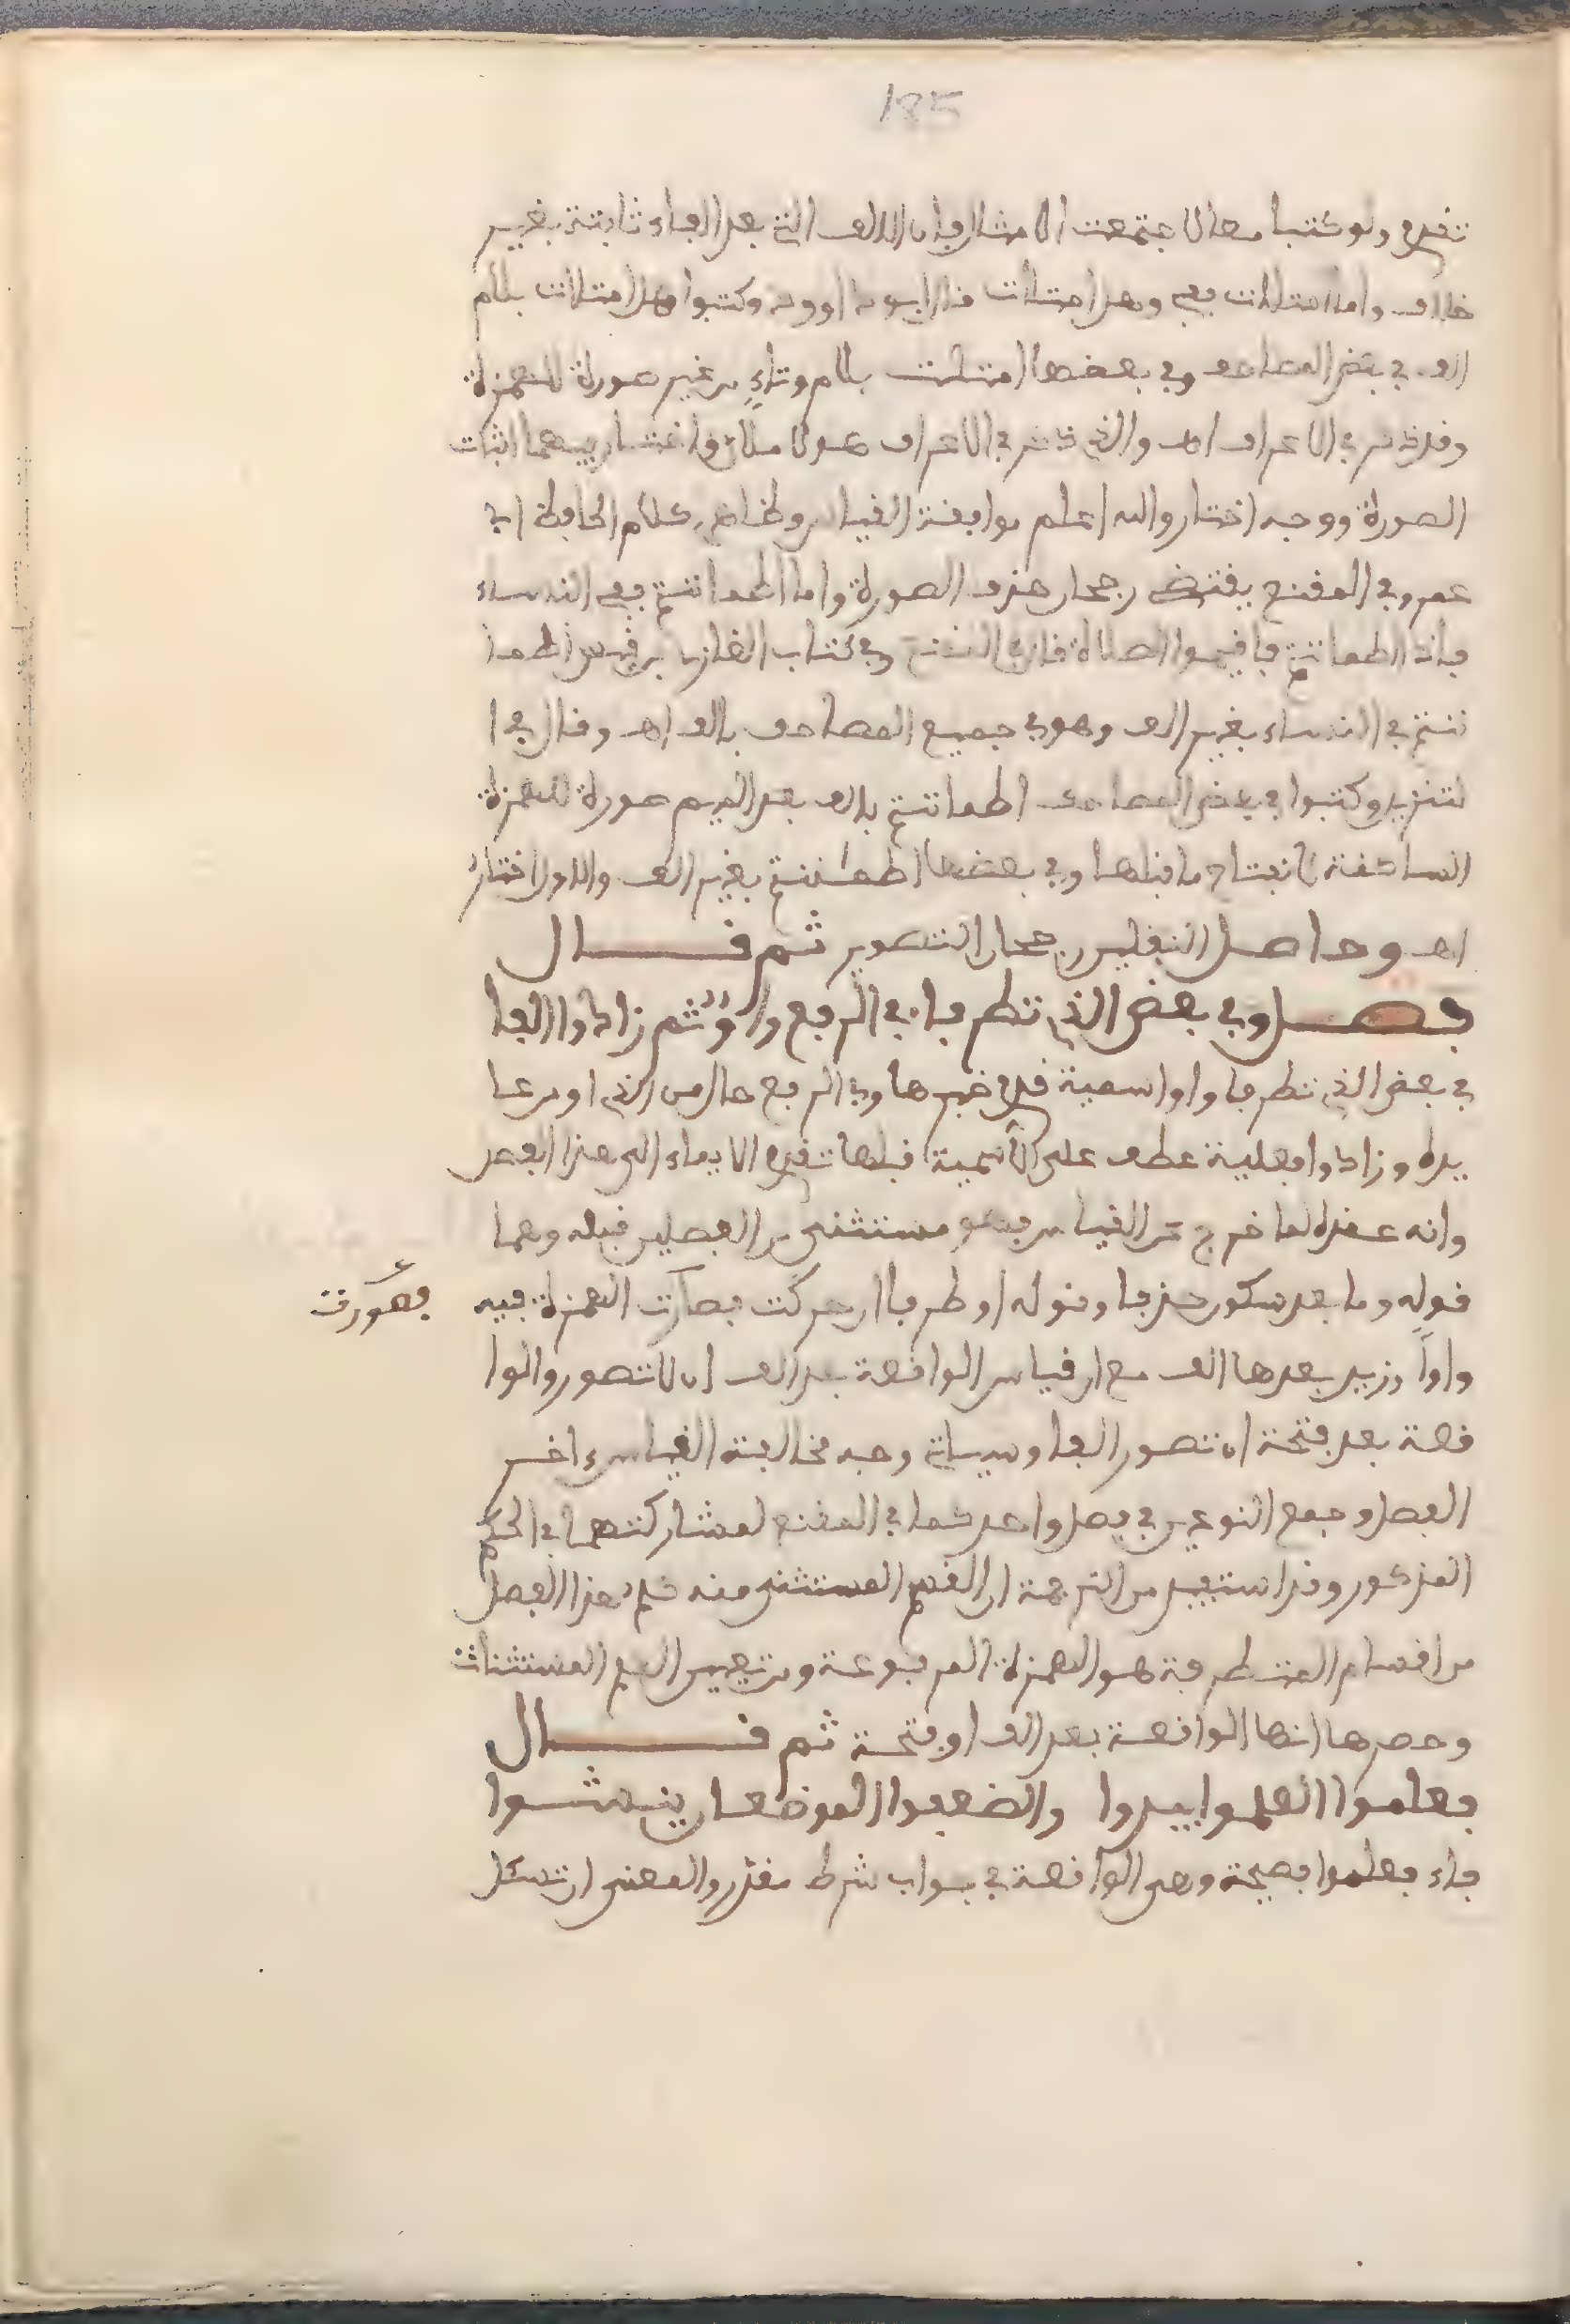 185
تقدم ولو كتبا معا لاجتمعت الامثال فان الالف التي بعد الفاء ثابتة بغير
خلاف واما امتلات ففي وهل امتلأت قال ابو داوود وكتبوا وهل امتلات بلام
الف في بعض المصاحف وفي بعضها امتلت بلام وتاء من غير صورة للهمزة
وقد ذكر في الاعراف اهـ والذي ذكر في الاعراف هو لاملان واختار فيهما اثبات
الصورة ووجه اختار والله اعلم موافقة القياس وظاهر كلام الحافظ ابي
عمرو في المقنع يقتضي رجحان هذه الصورة واما اطماننتم ففي النساء
فاذا اطماننتم فاقيموا الصلاة قال في المقنع وفي كتاب الغازي بن قيس اطما
ننتم في النساء بغير الف وهو في جميع المصاحف بالف اهـ وقال في ا
لتنزيل وكتبوا في بعض المصاحف اطماننتم بالف بعد الميم صورة للهمزة
الساكنة لانفتاح ما قبلها وفي بعضها اطمننتم بغير الف والاول اختار
اهـ وحاصل النقلين رجحان التصوير ثم قـــال
فصـــل وفي بعض الذي تطرفا في الرفع واو ثم زادوا الفا
في بعض الذي تطرفا واو اسمية قدم خبرها وفي الرفع حال من الذي او من عا
يده وزادوا فعلية عطف على الاسمية قبلها تقدم الايماء الى هذا الفصل
وانه عقده لما خرج عن القياس فهو مستثنى من الفصلين قبله وهما
قوله وما بعد سكون حذفا وقوله او طرفا ان حركت فصارت الهمزة فيه
فصورت
واوا وزيد بعدها الف مع ان قياس الواقعة بعد الف ان لا تصور والوا
قعة بعد فتحة ان تصور الفا وسياتي وجه مخالفة القياس ءاخر
الفصل وجمع النوعين في فصل واحد كما في المقنع لمشاركتهما في الحكم
المذكور وقد استفيد من الترجمة ان القسم المستثنى منه في هذا الفصل
من اقسام المتطرفة هو الهمزة المرفوعة ومن تعيين المستثنات
وحصرها انها الواقعة بعد الف او فتحة ثم قـــال
فعلموا العلموا يبدوا والضعفوا الموضعان ينشوا
فاء فعلموا فصيحة وهي الواقعة في جواب شرط مقدر والمعنى ان تسئل